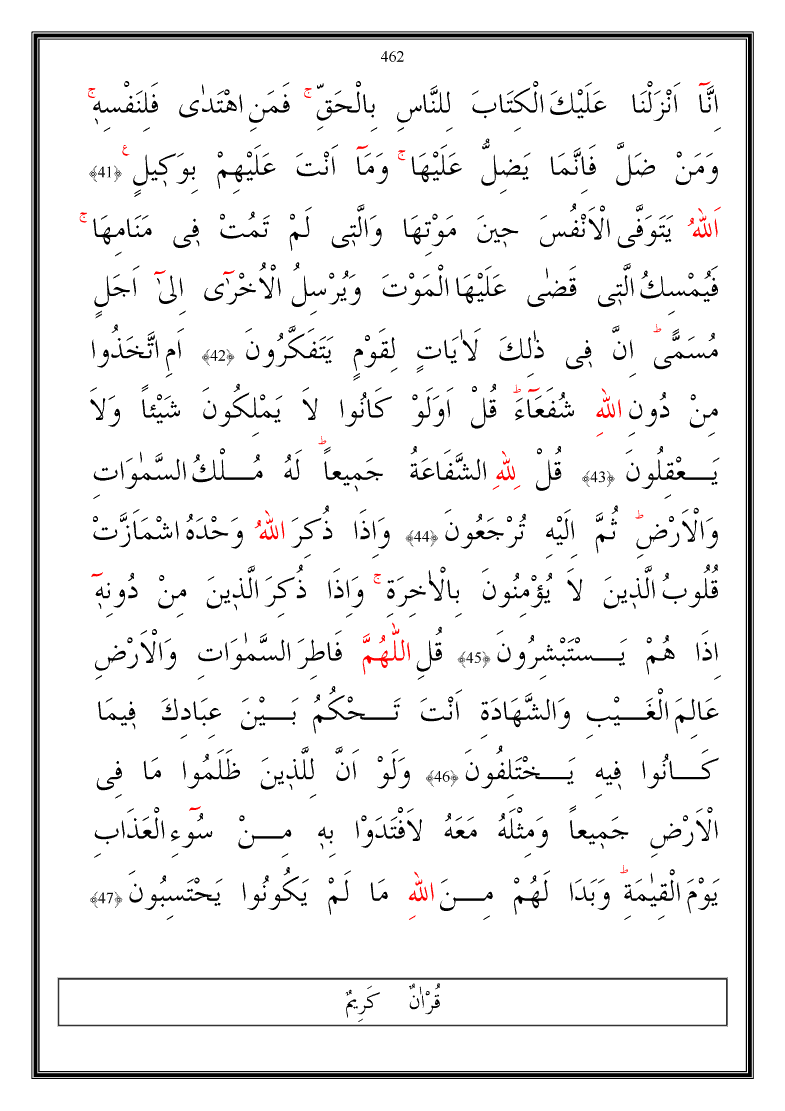 462
اِنَّٓا اَنْزَلْنَا عَلَيْكَ الْكِتَابَ لِلنَّاسِ بِالْحَقِّۚ فَمَنِ اهْتَدٰى فَلِنَفْسِه۪ۚ
وَمَنْ ضَلَّ فَاِنَّمَا يَضِلُّ عَلَيْهَاۚ وَمَٓا اَنْتَ عَلَيْهِمْ بِوَك۪يلٍ۟ ﴿41﴾
اَللهُ يَتَوَفَّى الْاَنْفُسَ ح۪ينَ مَوْتِهَا وَالَّت۪ى لَمْ تَمُتْ ف۪ى مَنَامِهَاۚ
فَيُمْسِكُ الَّت۪ى قَضٰى عَلَيْهَا الْمَوْتَ وَيُرْسِلُ الْاُخْرٰٓى اِلىٰٓ اَجَلٍ
مُسَمًّىۜ اِنَّ ف۪ى ذٰلِكَ لَاٰيَاتٍ لِقَوْمٍ يَتَفَكَّرُونَ ﴿42﴾ اَمِ اتَّخَذُوا
مِنْ دُونِ اللهِ شُفَعَٓاءَۜ قُلْ اَوَلَوْ كَانُوا لاَ يَمْلِكُونَ شَيْئاً وَلاَ
يَــعْقِلُونَ ﴿43﴾ قُلْ لِلهِ الشَّفَاعَةُ جَم۪يعاًۜ لَهُ مُــلْكُ السَّمٰوَاتِ
وَالْاَرْضِۜ ثُمَّ اِلَيْهِ تُرْجَعُونَ ﴿44﴾ وَاِذَا ذُكِرَ اللهُ وَحْدَهُ اشْمَاَزَّتْ
قُلُوبُ الَّذ۪ينَ لاَ يُؤْمِنُونَ بِالْاٰخِرَةِۚ وَاِذَا ذُكِرَ الَّذ۪ينَ مِنْ دُونِه۪ٓ
اِذَا هُمْ يَــسْتَبْشِرُونَ ﴿45﴾ قُلِ اللّٰهُمَّ فَاطِرَ السَّمٰوَاتِ وَالْاَرْضِ
عَالِمَ الْغَــيْبِ وَالشَّهَادَةِ اَنْتَ تَــحْكُمُ بَــيْنَ عِبَادِكَ ف۪يمَا
كَــانُوا ف۪يهِ يَــخْتَلِفُونَ ﴿46﴾ وَلَوْ اَنَّ لِلَّذ۪ينَ ظَلَمُوا مَا فِى
الْاَرْضِ جَم۪يعاً وَمِثْلَهُ مَعَهُ لاَفْتَدَوْا بِه۪ مِــنْ سُٓوءِ الْعَذَابِ
يَوْمَ الْقِيٰمَةِۜ وَبَدَا لَهُمْ مِــنَ اللهِ مَا لَمْ يَكُونُوا يَحْتَسِبُونَ ﴿47﴾
قُرْاٰنٌ كَرِيمٌ